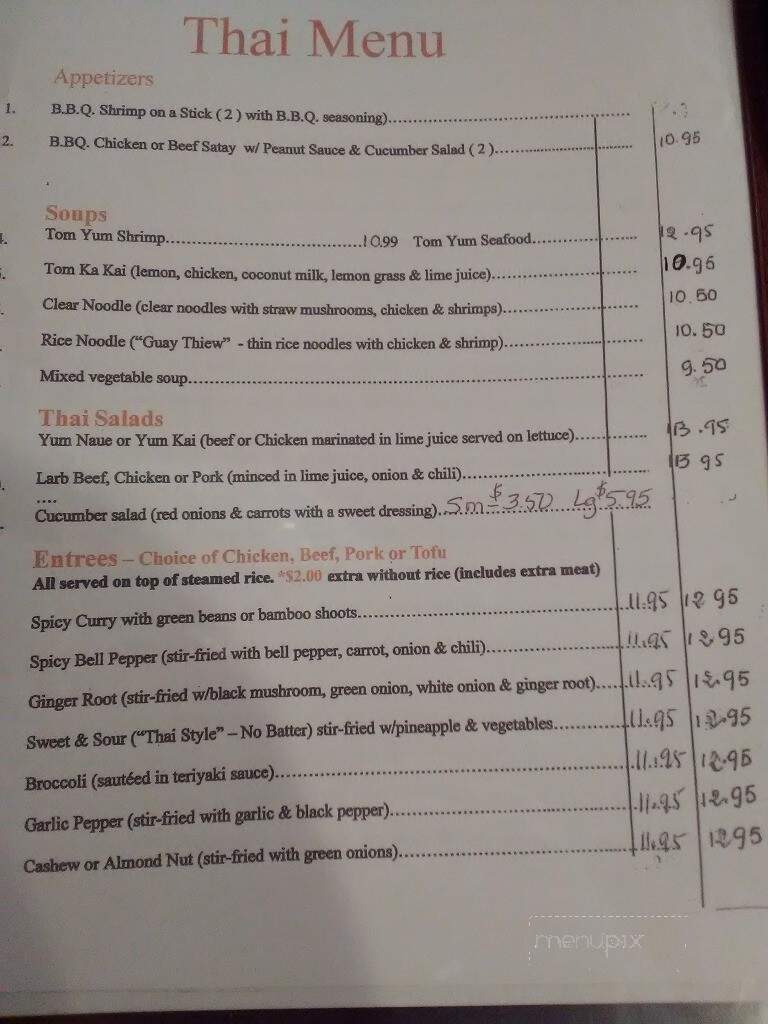 Thai Menu
Appetizers
1. B.B.Q. Shrimp on a Stick ( 2 ) with B.B.Q. seasoning)
2. B.BQ. Chicken or Beef Satay w/ Peanut Sauce & Cucumber Salad ( 2 ) 10.95
Soups
Tom Yum Shrimp 10.99 Tom Yum Seafood 12.95
Tom Ka Kai (lemon, chicken, coconut milk, lemon grass & lime juice) 10.95
Clear Noodle (clear noodles with straw mushrooms, chicken & shrimps) 10.50
Rice Noodle (“Guay Thiew” - thin rice noodles with chicken & shrimp) 10.50
Mixed vegetable soup 9.50
Thai Salads
Yum Naue or Yum Kai (beef or Chicken marinated in lime juice served on lettuce) 13.95
Larb Beef, Chicken or Pork (minced in lime juice, onion & chili) 13 95
....
Cucumber salad (red onions & carrots with a sweet dressing) Sm $3.50 Lg $5.95
Entrees – Choice of Chicken, Beef, Pork or Tofu
All served on top of steamed rice. *$2.00 extra without rice (includes extra meat)
Spicy Curry with green beans or bamboo shoots 11.95 12 95
Spicy Bell Pepper (stir-fried with bell pepper, carrot, onion & chili) 11.95 12.95
Ginger Root (stir-fried w/black mushroom, green onion, white onion & ginger root) 11.95 12.95
Sweet & Sour (“Thai Style” – No Batter) stir-fried w/pineapple & vegetables 11.95 12.95
Broccoli (sautéed in teriyaki sauce) 11.95 12.95
Garlic Pepper (stir-fried with garlic & black pepper) 11.95 12.95
Cashew or Almond Nut (stir-fried with green onions) 11.95 1295
menupix